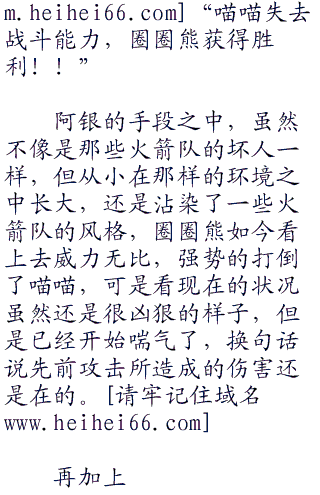 m.heihei66.com] “喵喵失去
战斗能力，圈圈熊获得胜
利！！”
阿银的手段之中，虽然
不像是那些火箭队的坏人一
样，但从小在那样的环境之
中长大，还是沾染了一些火
箭队的风格，圈圈熊如今看
上去威力无比，强势的打倒
了喵喵，可是看现在的状况
虽然还是很凶狠的样子，但
是已经开始喘气了，换句话
说先前攻击所造成的伤害还
是在的。[请牢记住域名
www.heihei66.com]
再加上